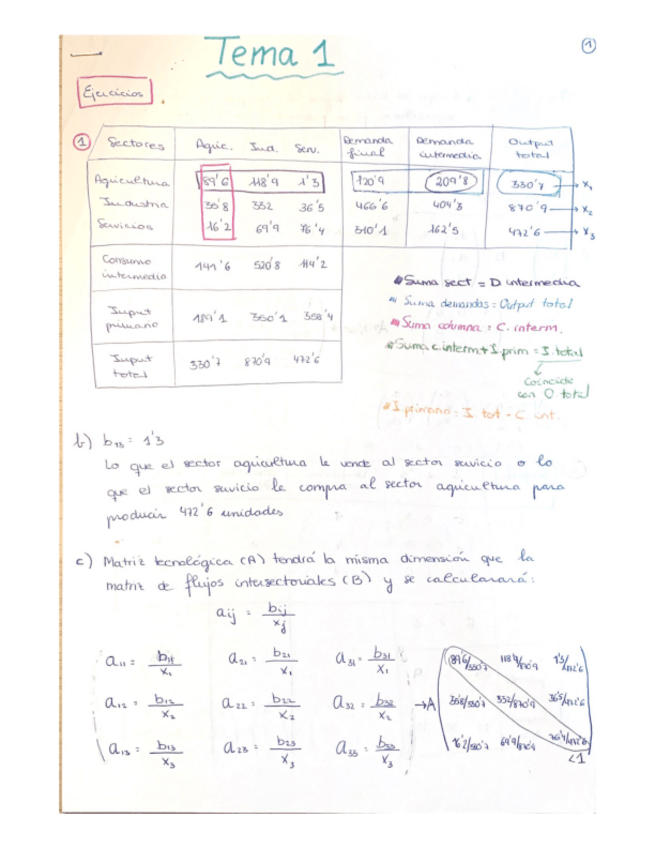 Tema 1
1
Ejercicios
1 Sectores Agric. Ind. Serv. Demanda final Demanda intermedia Output total
Agricultura 89'6 118'9 1'3 120'9 209'8 330'7 → x₁
Industria 35'8 332 36'5 466'6 404'3 870'9 → x₂
Servicios 16'2 69'9 76'4 310'1 162'5 472'6 → x₃
Consumo intermedio 141'6 520'8 114'2
Input primario 189'1 350'1 358'4
Input total 330'7 870'9 472'6
Suma sect = D intermedia
Suma demandas = Output total
Suma columna = C. interm.
Suma c.interm + I.prim = I.total
Coincide
con O total
I.primario = I. tot - C int.
b) b₁₃ = 1'3
Lo que el sector agricultura le vende al sector servicio o lo
que el sector servicio le compra al sector agricultura para
producir 472'6 unidades
c) Matriz tecnológica (A) tendrá la misma dimensión que la
matriz de flujos intersectoriales (B) y se calculará:
aij = bij/xj
a₁₁ = b₁₁/x₁ a₂₁ = b₂₁/x₁ a₃₁ = b₃₁/x₁ 89'6/330'7 118'9/870'9 1'3/472'6
a₁₂ = b₁₂/x₂ a₂₂ = b₂₂/x₂ a₃₂ = b₃₂/x₂ → A 35'8/330'7 332/870'9 36'5/472'6
a₁₃ = b₁₃/x₃ a₂₃ = b₂₃/x₃ a₃₃ = b₃₃/x₃ 16'2/330'7 69'9/870'9 76'4/472'6
<1